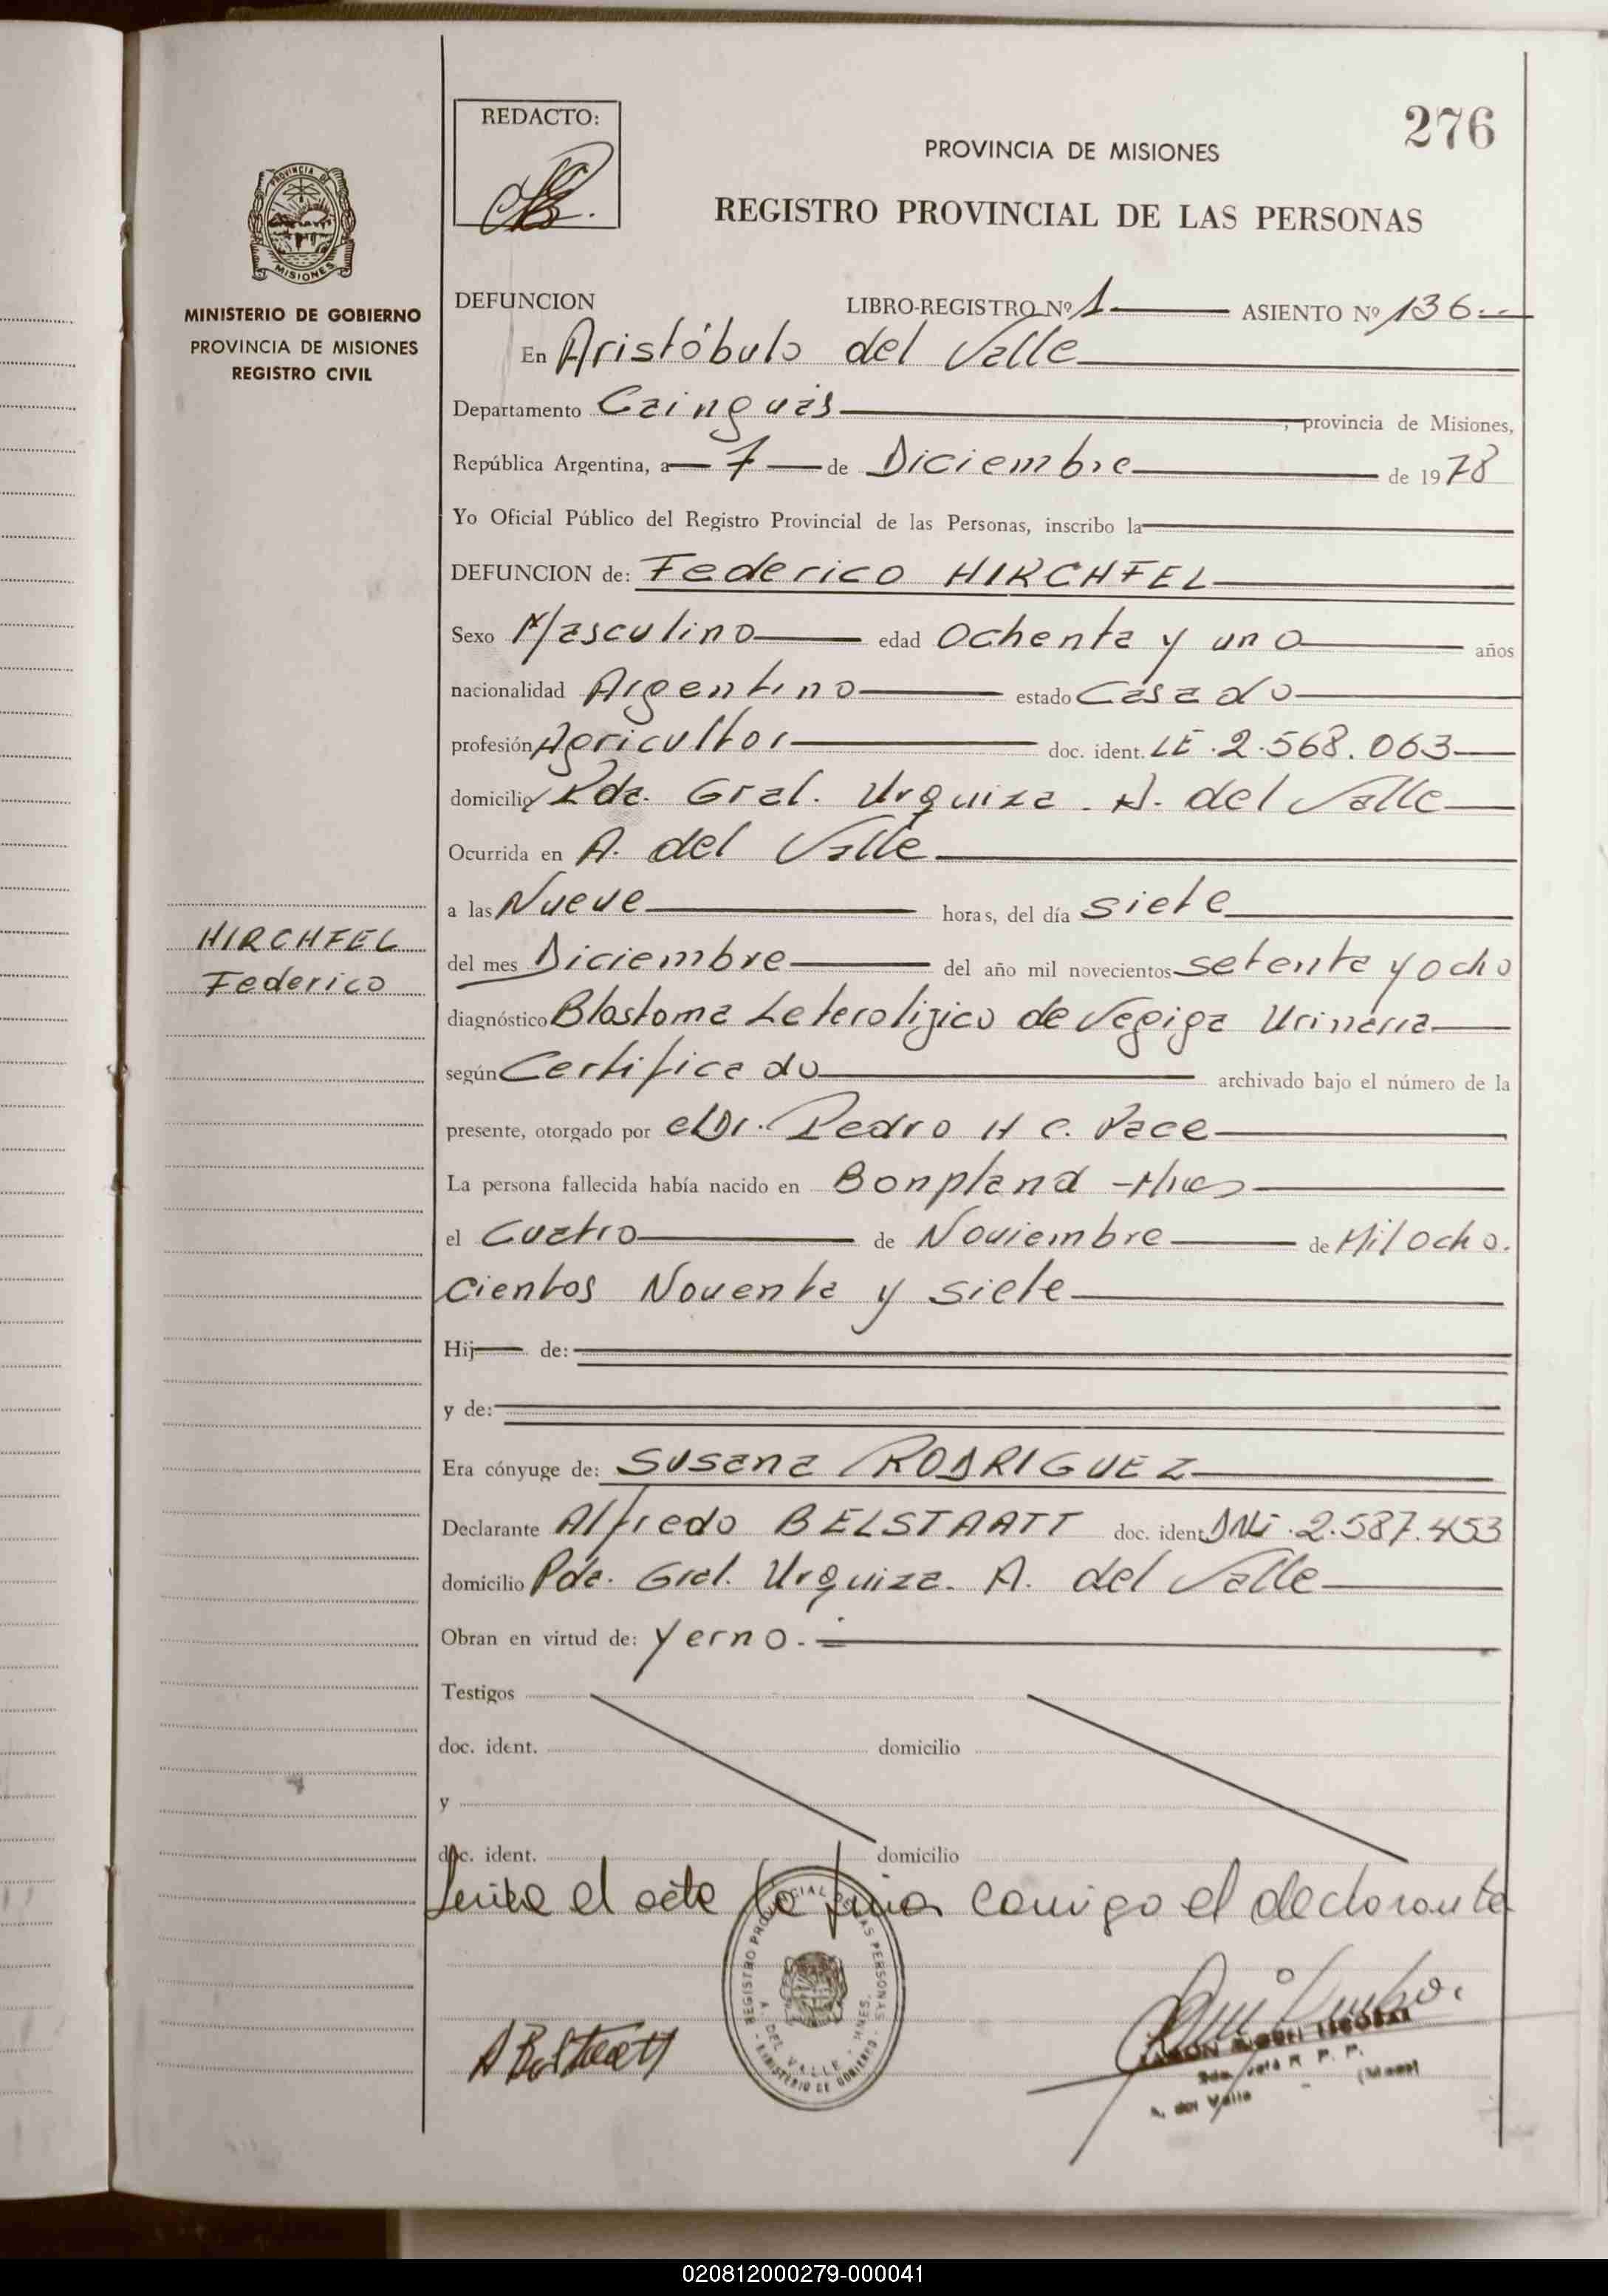 276
REDACTO:
PROVINCIA DE MISIONES
REGISTRO PROVINCIAL DE LAS PERSONAS
PROVINCIA DE
MISIONES
MINISTERIO DE GOBIERNO
PROVINCIA DE MISIONES
REGISTRO CIVIL
DEFUNCION LIBRO-REGISTRO Nº 1 ASIENTO Nº 136
En Aristóbulo del Valle
Departamento Cainguás, provincia de Misiones,
República Argentina, a 7 de Diciembre de 1978
Yo Oficial Público del Registro Provincial de las Personas, inscribo la
DEFUNCION de: Federico HIRCHFEL
Sexo Masculino edad Ochenta y uno años
nacionalidad Argentino estado Casado
profesión Agricultor doc. ident. LE.2.568.063
domicilio Pda. Gral. Urquiza. A. del Valle
Ocurrida en A. del Valle
a las Nueve horas, del día siete
HIRCHFEL
Federico
del mes Diciembre del año mil novecientos setenta y ocho
diagnóstico Blastoma Leterolijico de Vegiga Urinaria
según Certificado archivado bajo el número de la
presente, otorgado por el Dr. Pedro H C. Pace
La persona fallecida había nacido en Bonpland - Mnes
el Cuatro de Noviembre de Mil Ocho.
cientos Noventa y siete
Hij de:
y de:
Era cónyuge de: Susana RODRIGUEZ
Declarante Alfredo BELSTAATT doc. ident. DNI.2.587.453
domicilio Pda. Gral. Urquiza. A. del Valle
Obran en virtud de: Yerno.
Testigos
doc. ident. domicilio
y
doc. ident. domicilio
el acta la firma conmigo el declarante
REGISTRO PROVINCIAL DE LAS PERSONAS
A. DEL VALLE - MNES.
MINISTERIO DE GOBIERNO
A Belstaatt
RAMON MIGUEL ESCOBAR
R. P. P.
A. del Valle (Mnes)
020812000279-000041